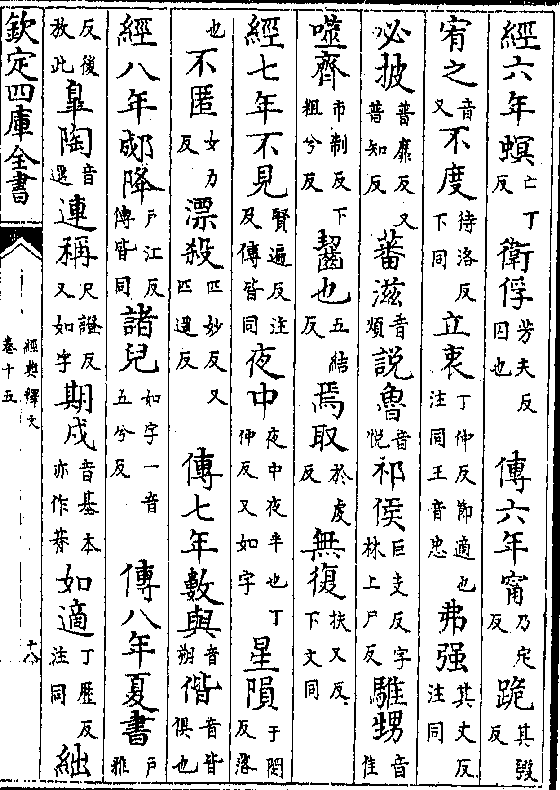 經六年螟亡丁反衛俘芳夫反囚也 傳六年甯乃定反跪其毀反
宥之音又不度待洛反下同立衷丁仲反節適也注同王音忠弗强其丈反注同
必披普靡反又普知反蕃滋音煩說魯音悅祁侯巨支反字林上尸反騅甥音隹
噬齊市制反下粗兮反齧也五結反焉取於虔反無復扶又反下文同
經七年不見賢遍反注及傳皆同夜中夜中夜半也丁仲反又如字星隕于閔反落
也不匿女力反漂殺匹妙反又匹遥反 傳七年數與音朔偕音皆俱也
經八年郕降戶江反傳皆同諸兒如字一音五兮反 傳八年夏書戶雅
反後放此皐陶音遥連稱尺證反又如字期戍音基本亦作朞如適丁歷反注同絀
欽定四庫全書
經典釋文
卷十五
十八